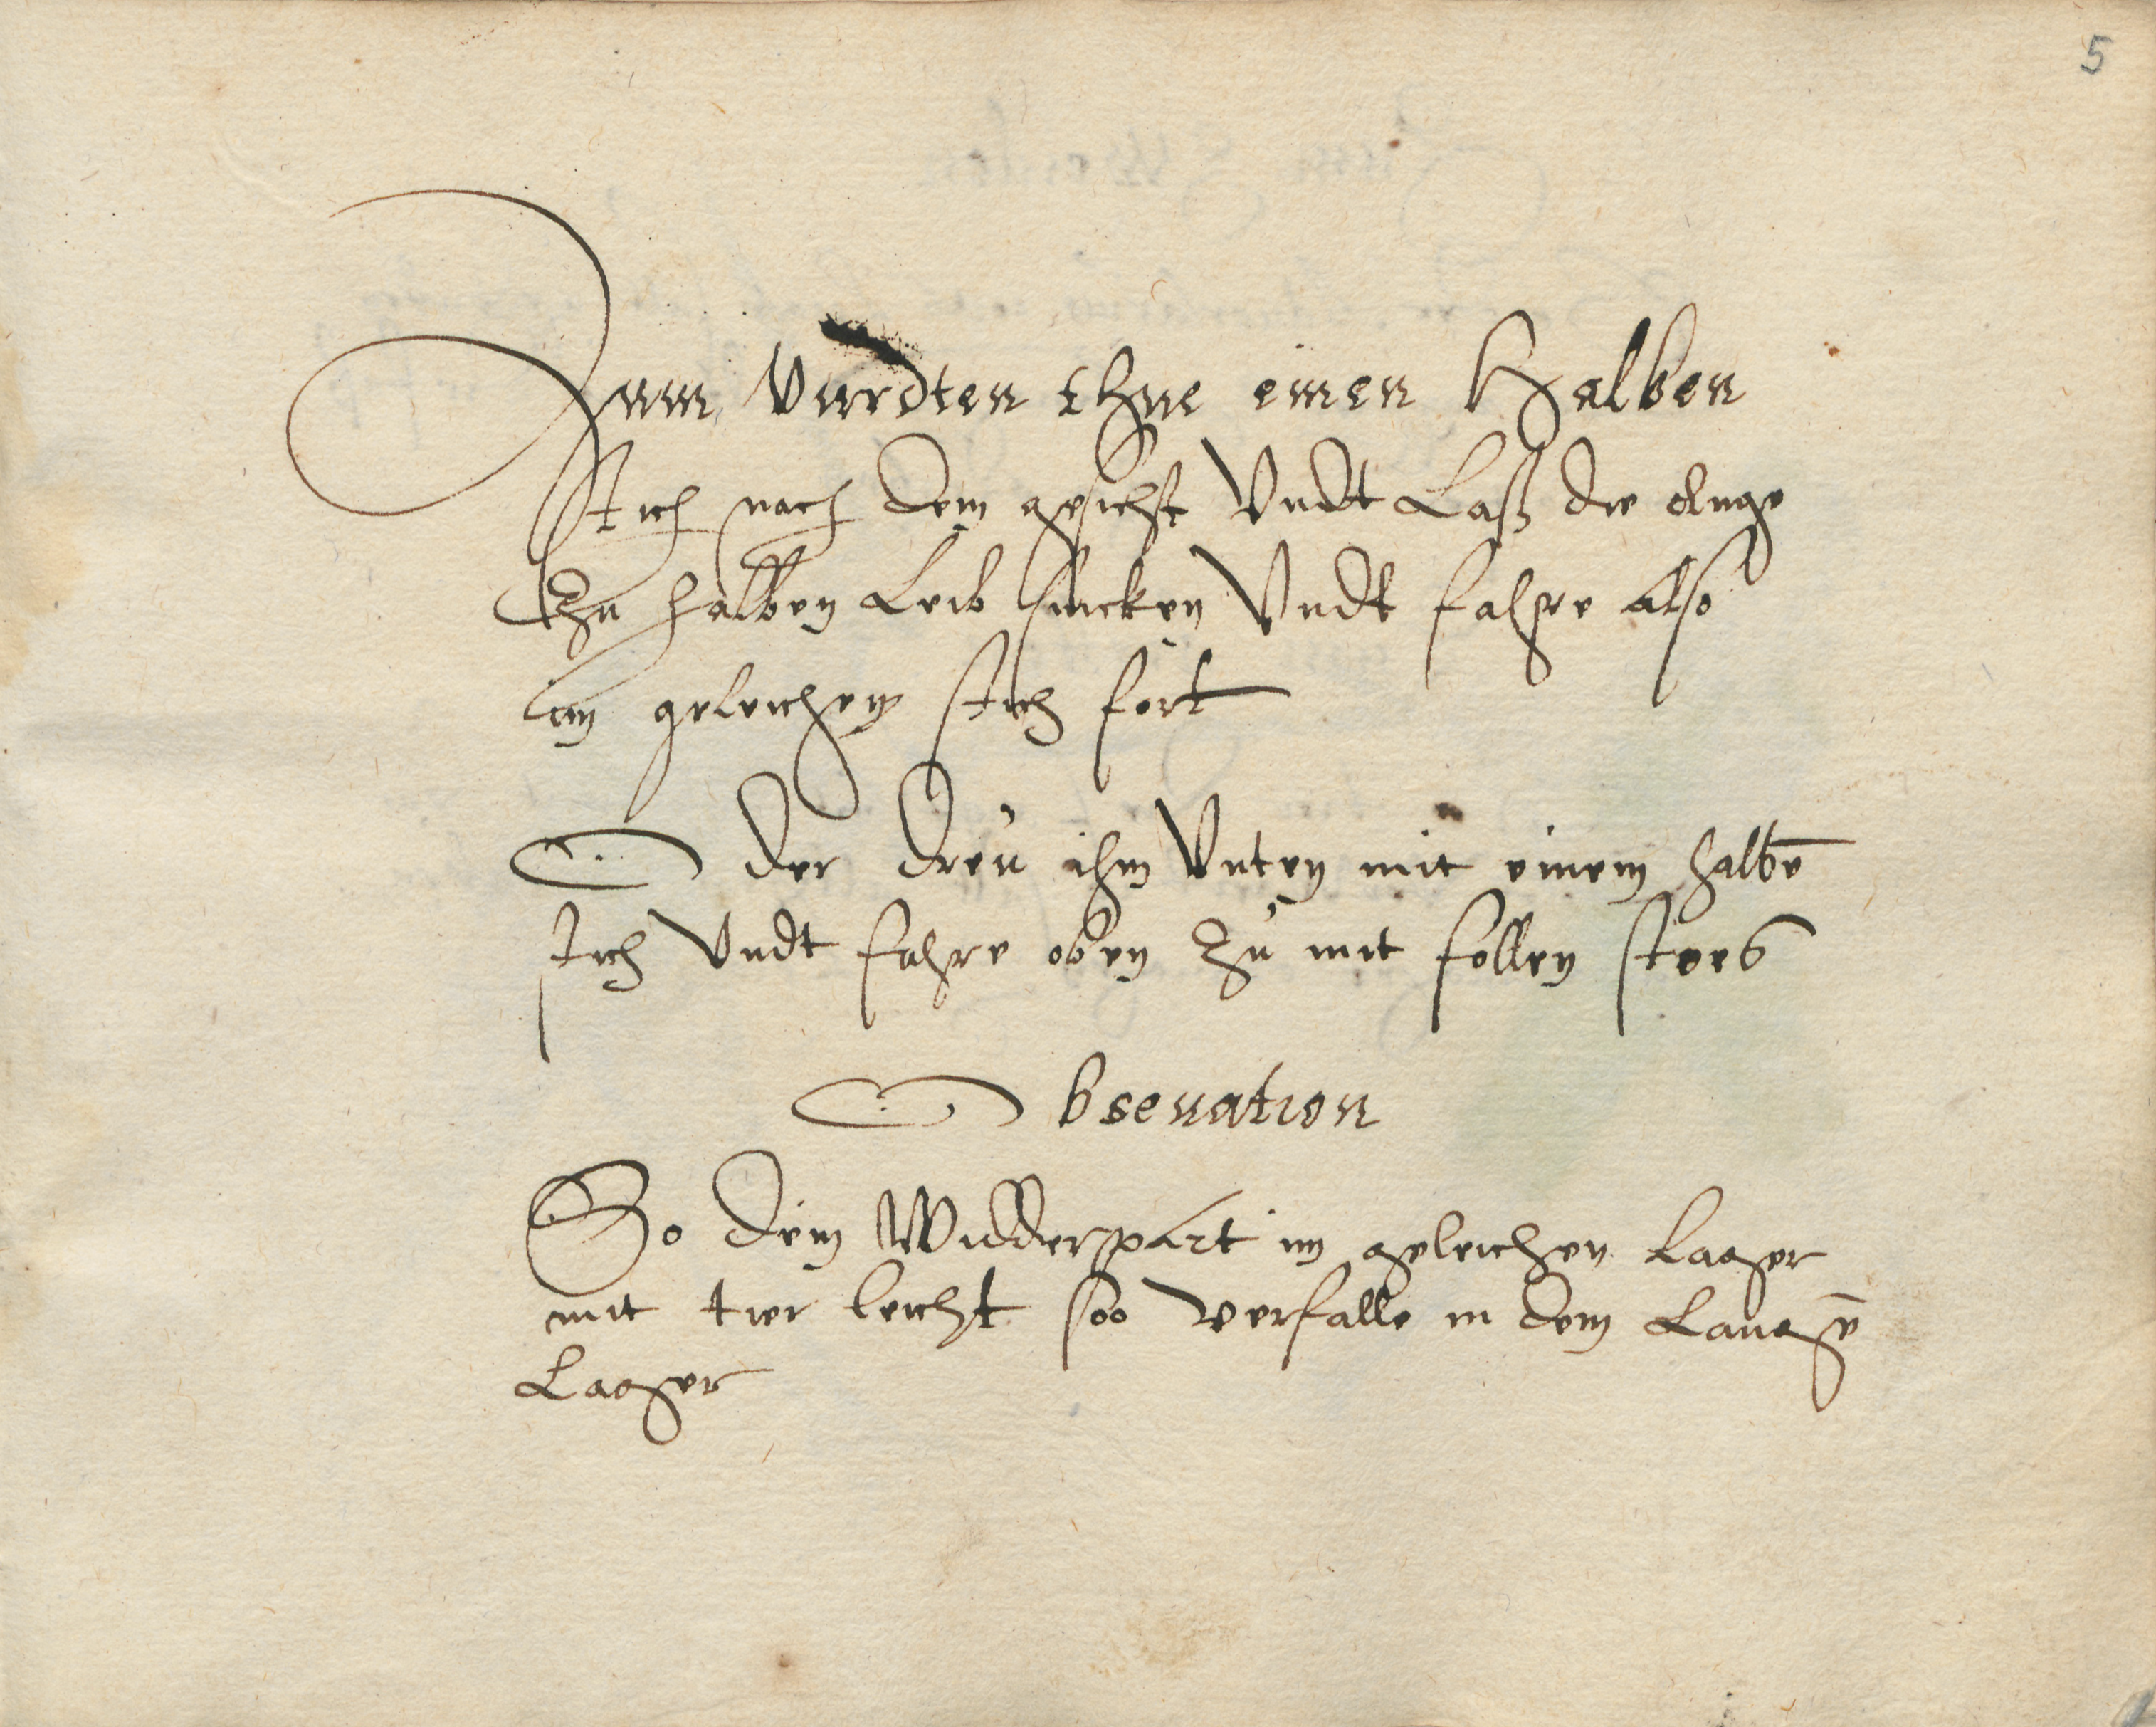 5
Zum Vierdten thue einen Halben
stich nach dem gesicht Vndt Laß die klinge
Zu halben Leib sincken Vndt fahre also
im geleichen stich fort
Oder dreü ihm Vnten mit einem halbē
stich Vndt fahre oben Zu mit follen stoes
Obseuation
So dein Widderpart im geleichen Lager
mit tier leicht soo verfalle in dem Langē
Lager